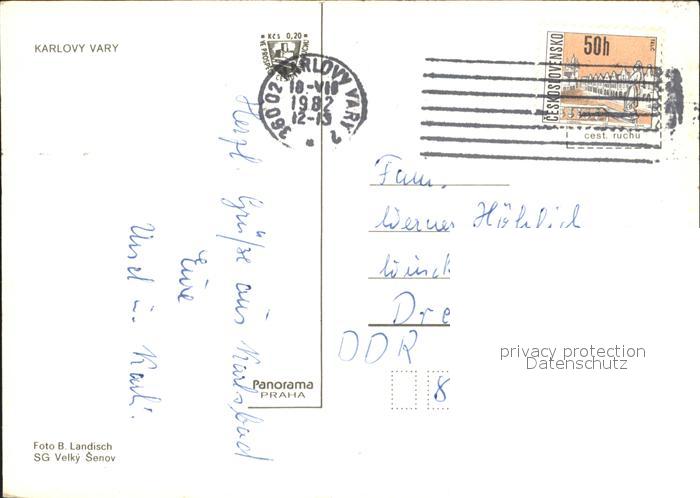 KARLOVY VARY
Kčs 0,20
360 02 KARLOVY VARY 2
18-VII
1982
12-13
ČESKOSLOVENSKO
50h
cest. ruchu
Herzl. Grüße aus Karlsbad
Eure
u. Karli.
Fam.
Werner
Dre
DDR
8
privacy protection
Datenschutz
Panorama
PRAHA
Foto B. Landisch
SG Velký Šenov